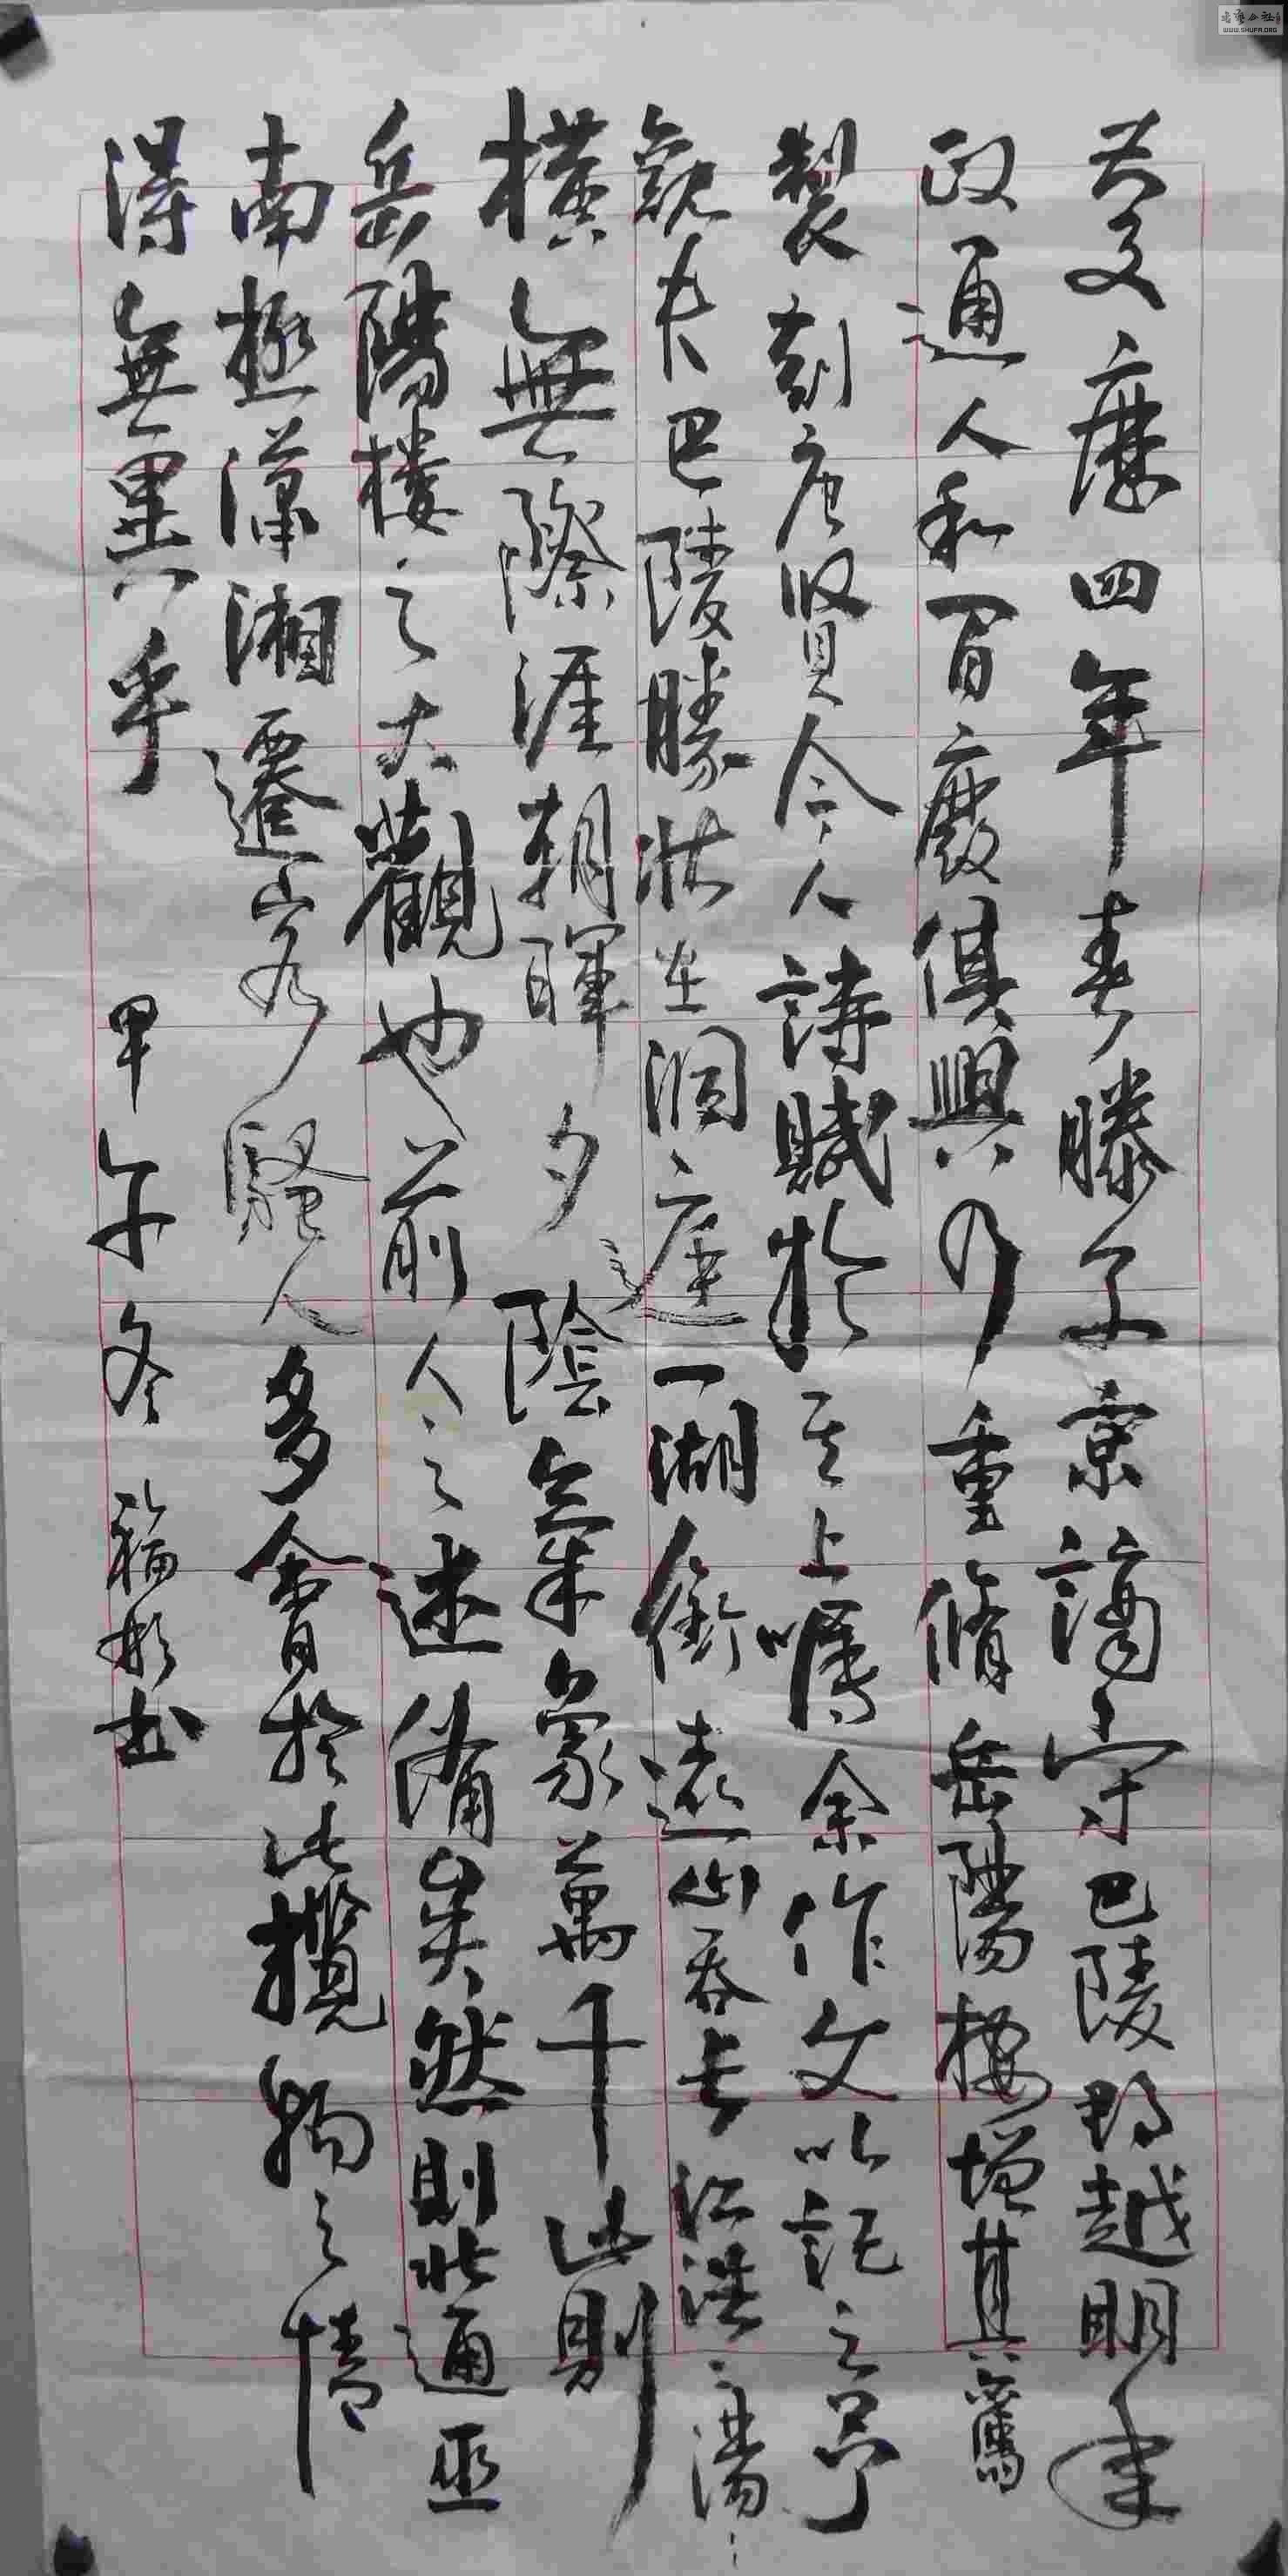 慶曆四年春滕子京謫守巴陵郡越明年
政通人和百廢俱興乃重脩岳陽樓增其舊
製刻唐賢今人詩賦於其上囑余作文以記之予
觀夫巴陵勝狀在洞庭一湖銜遠山吞長江浩浩湯湯
橫無際涯朝暉夕陰氣象萬千此則
岳陽楼之大觀也前人之述備矣然則北通巫
南極瀟湘遷客騷人多會於此攬物之情
得無異乎 甲午冬 福彬书
WWW.SHUFA.ORG